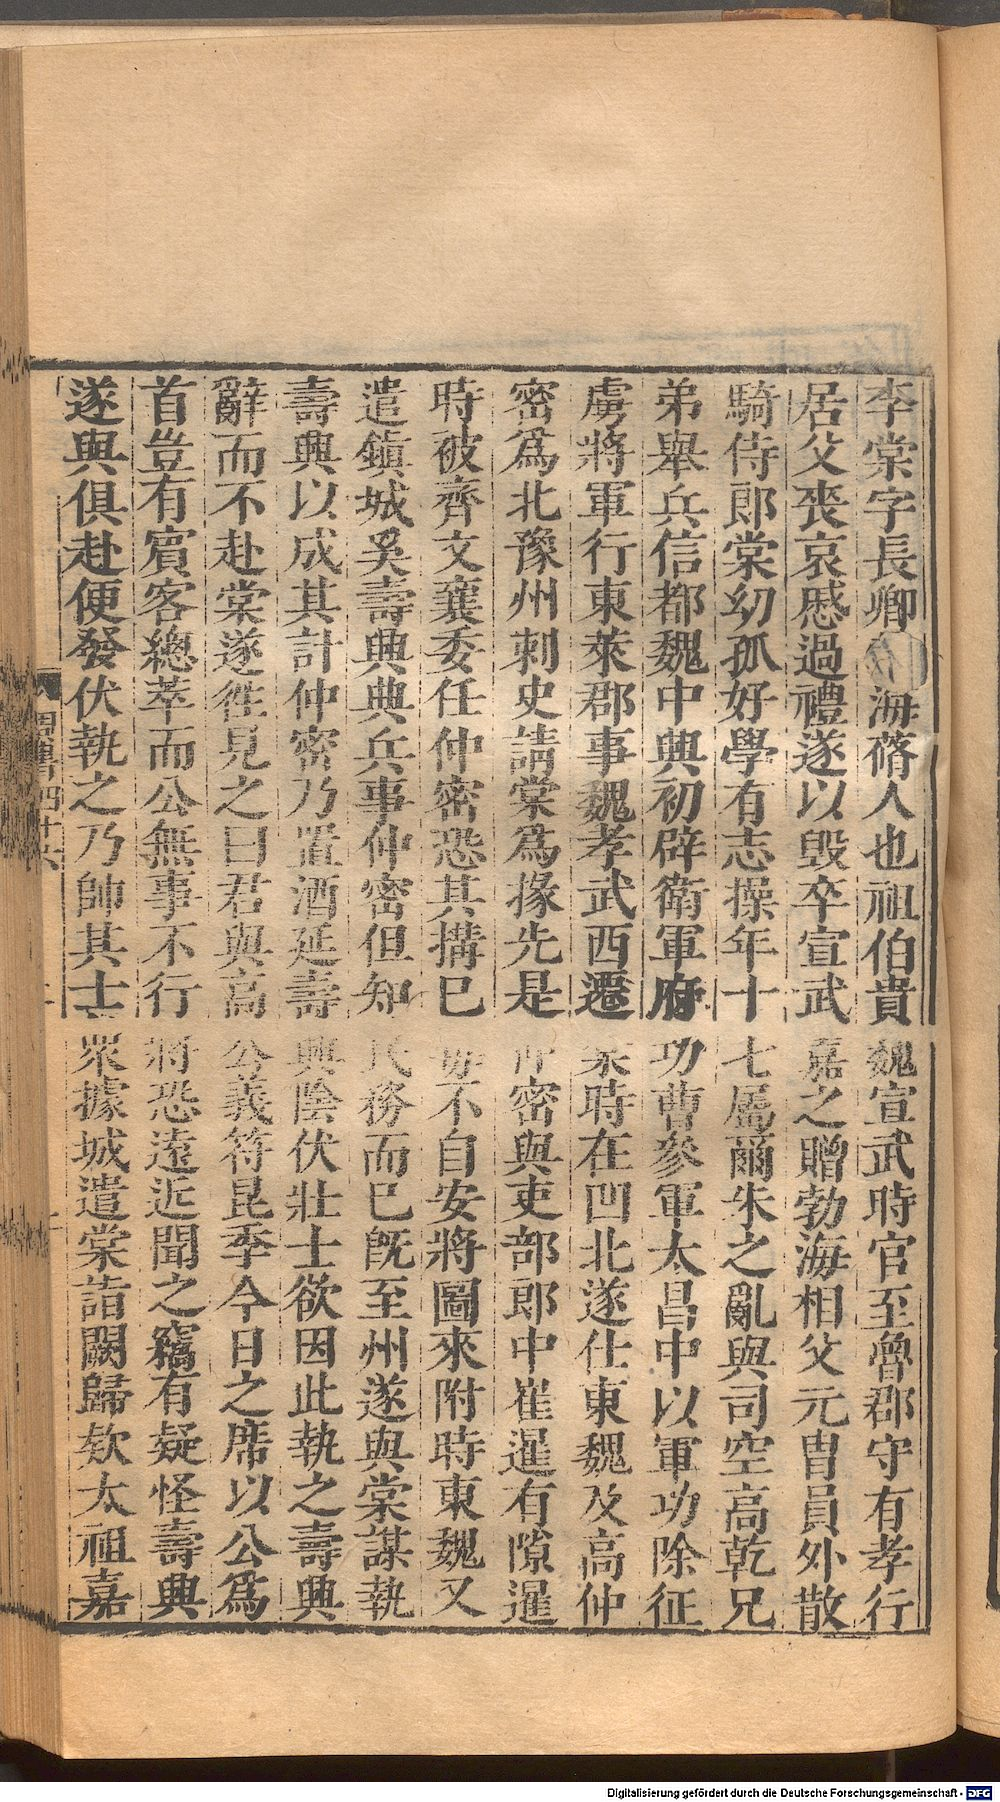 李棠字長卿海蓨人也祖伯貴魏宣武時官至魯郡守有孝行
居父喪哀慼過禮遂以毁卒宣武嘉之贈勃海相父元胄員外散
騎侍郎棠幼孤好學有志操年十七屬爾朱之亂與司空高乾兄
弟舉兵信都魏中興初辟衛軍府功曹參軍太昌中以軍功除征
虜將軍行東萊郡事魏孝武西遷棠時在凹北遂仕東魏及高仲
密爲北豫州刺史請棠爲掾先是仲密與吏部郎中崔暹有隙暹
時被齊文襄委任仲密恐其搆已每不自安將圖來附時東魏又
遣鎮城奚壽興典兵事仲密但知民務而已旣至州遂與棠謀執
壽興以成其計仲密乃置酒延壽興陰伏壯士欲因此執之壽興
辭而不赴棠遂徃見之曰君與高公義符昆季今日之席以公爲
首豈有賔客總萃而公無事不行將恐遠近聞之竊有疑怪壽興
遂與俱赴便發伏執之乃帥其士衆據城遣棠詣闕歸欵太祖嘉
周書四十六
Digitalisierung gefördert durch die Deutsche Forschungsgemeinschaft - DFG